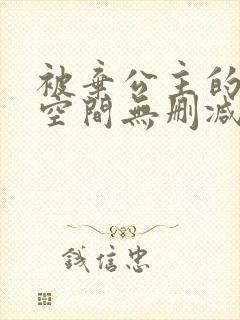 被棄公主的
空間無刪減
錢信忠